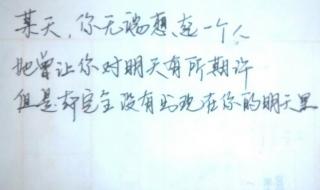 某天，你无端想起一个人
她曾让你对明天有所期许
但是却完全没有出现在你的明天里